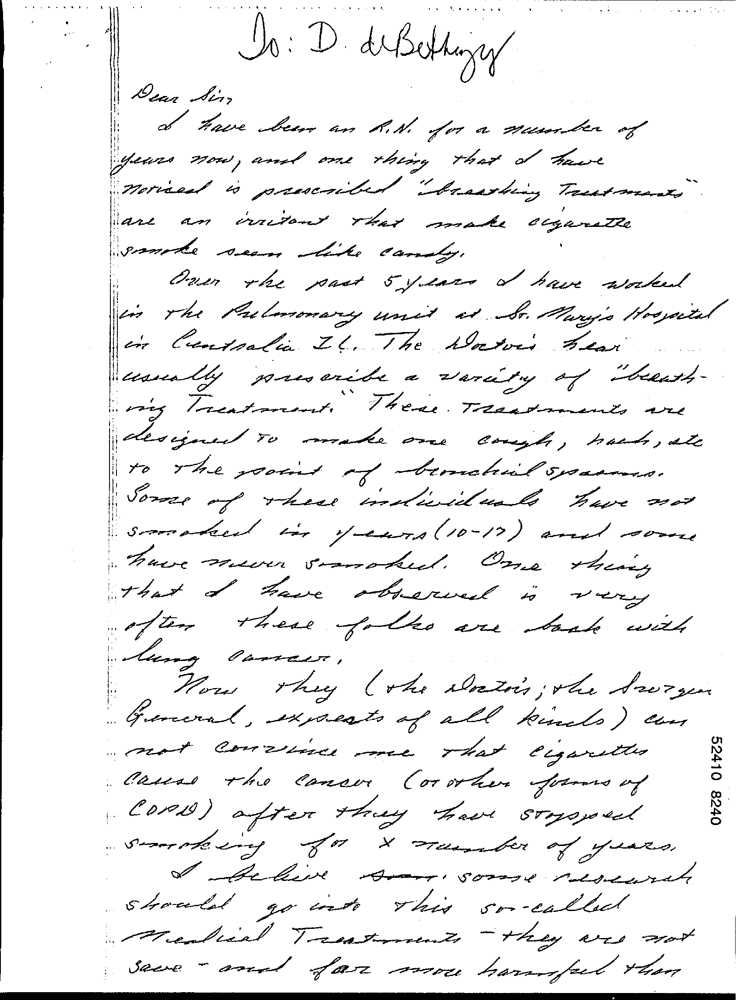 To: D. deBethizy
Dear Sir,
I have been an R.N. for a number of
years now, and one thing that I have
noticed is prescribed "breathing Treatments"
are an irritant that make cigarette
smoke seem like candy.
Over the past 5 years I have worked
in the Pulmonary unit at St. Mary's Hospital
in Centralia Il. The Doctors hear
usually prescribe a variety of "breath-
ing Treatment." These Treatments are
designed to make one cough, hack, etc
to the point of bronchial spasms.
Some of these individuals have not
smoked in years (10-17) and some
have never smoked. One thing
that I have observed is very
often these folks are back with
lung cancer.
Now they (the Doctors; the Surgeon
General, experts of all kinds) can
not convince me that cigarettes
cause the cancer (or other forms of
COPD) after they have stopped
smoking for X number of years.
I believe some research
should go into this so-called
Medical Treatments - they are not
save - and far more harmful than
52410 8240